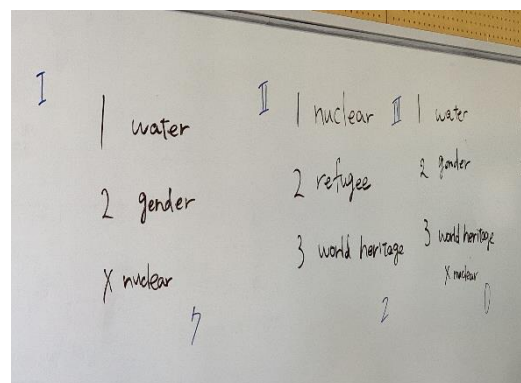 I
1 water
2 gender
X nuclear
7
II
1 nuclear
2 refugee
3 world heritage
2
III
1 water
2 gender
3 world heritage
X nuclear
0